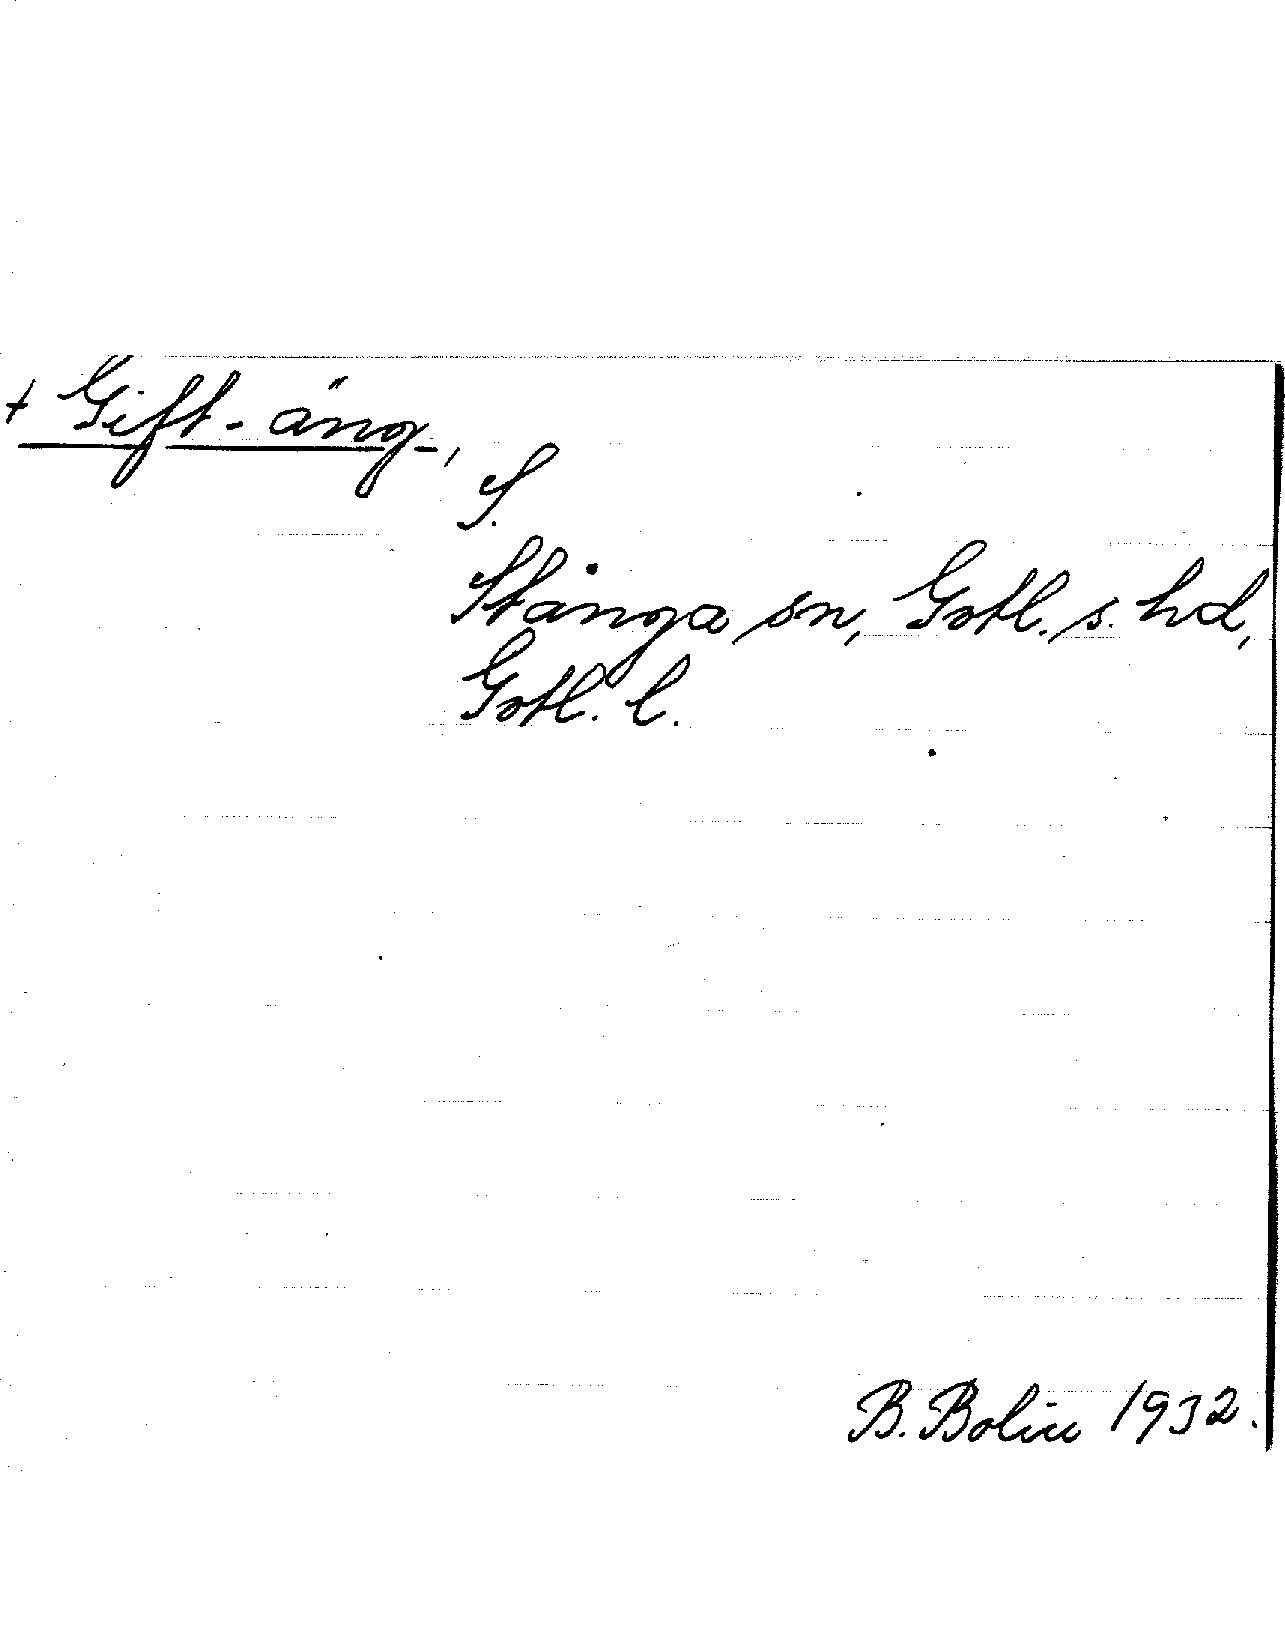 + Gift-äng,
S.
Stånga sn, Gotl. s. hd,
Gotl. l.
B. Bolin 1932.